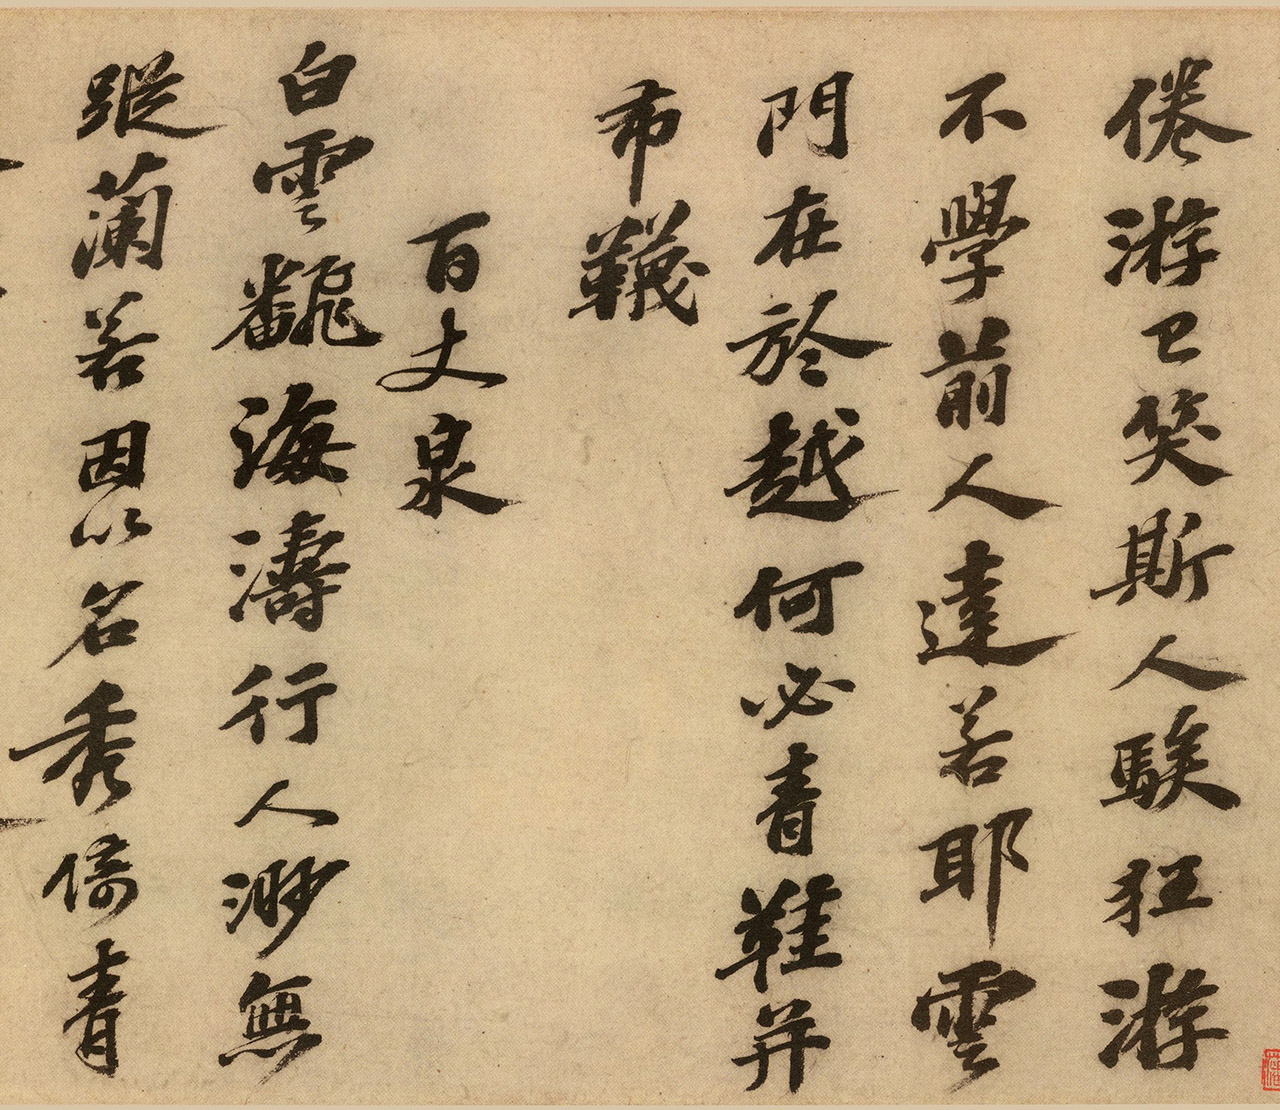 倦游已笑斯人騃狂游
不學前人達若耶雲
門在於越何必青鞋并
布韈
百丈泉
白雲飜海濤行人渺無
蹤蘭若因以名秀倚青